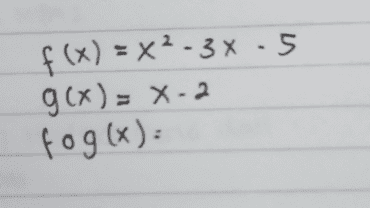 f(x) = x² - 3x - 5
g(x) = x - 2
fog(x) =